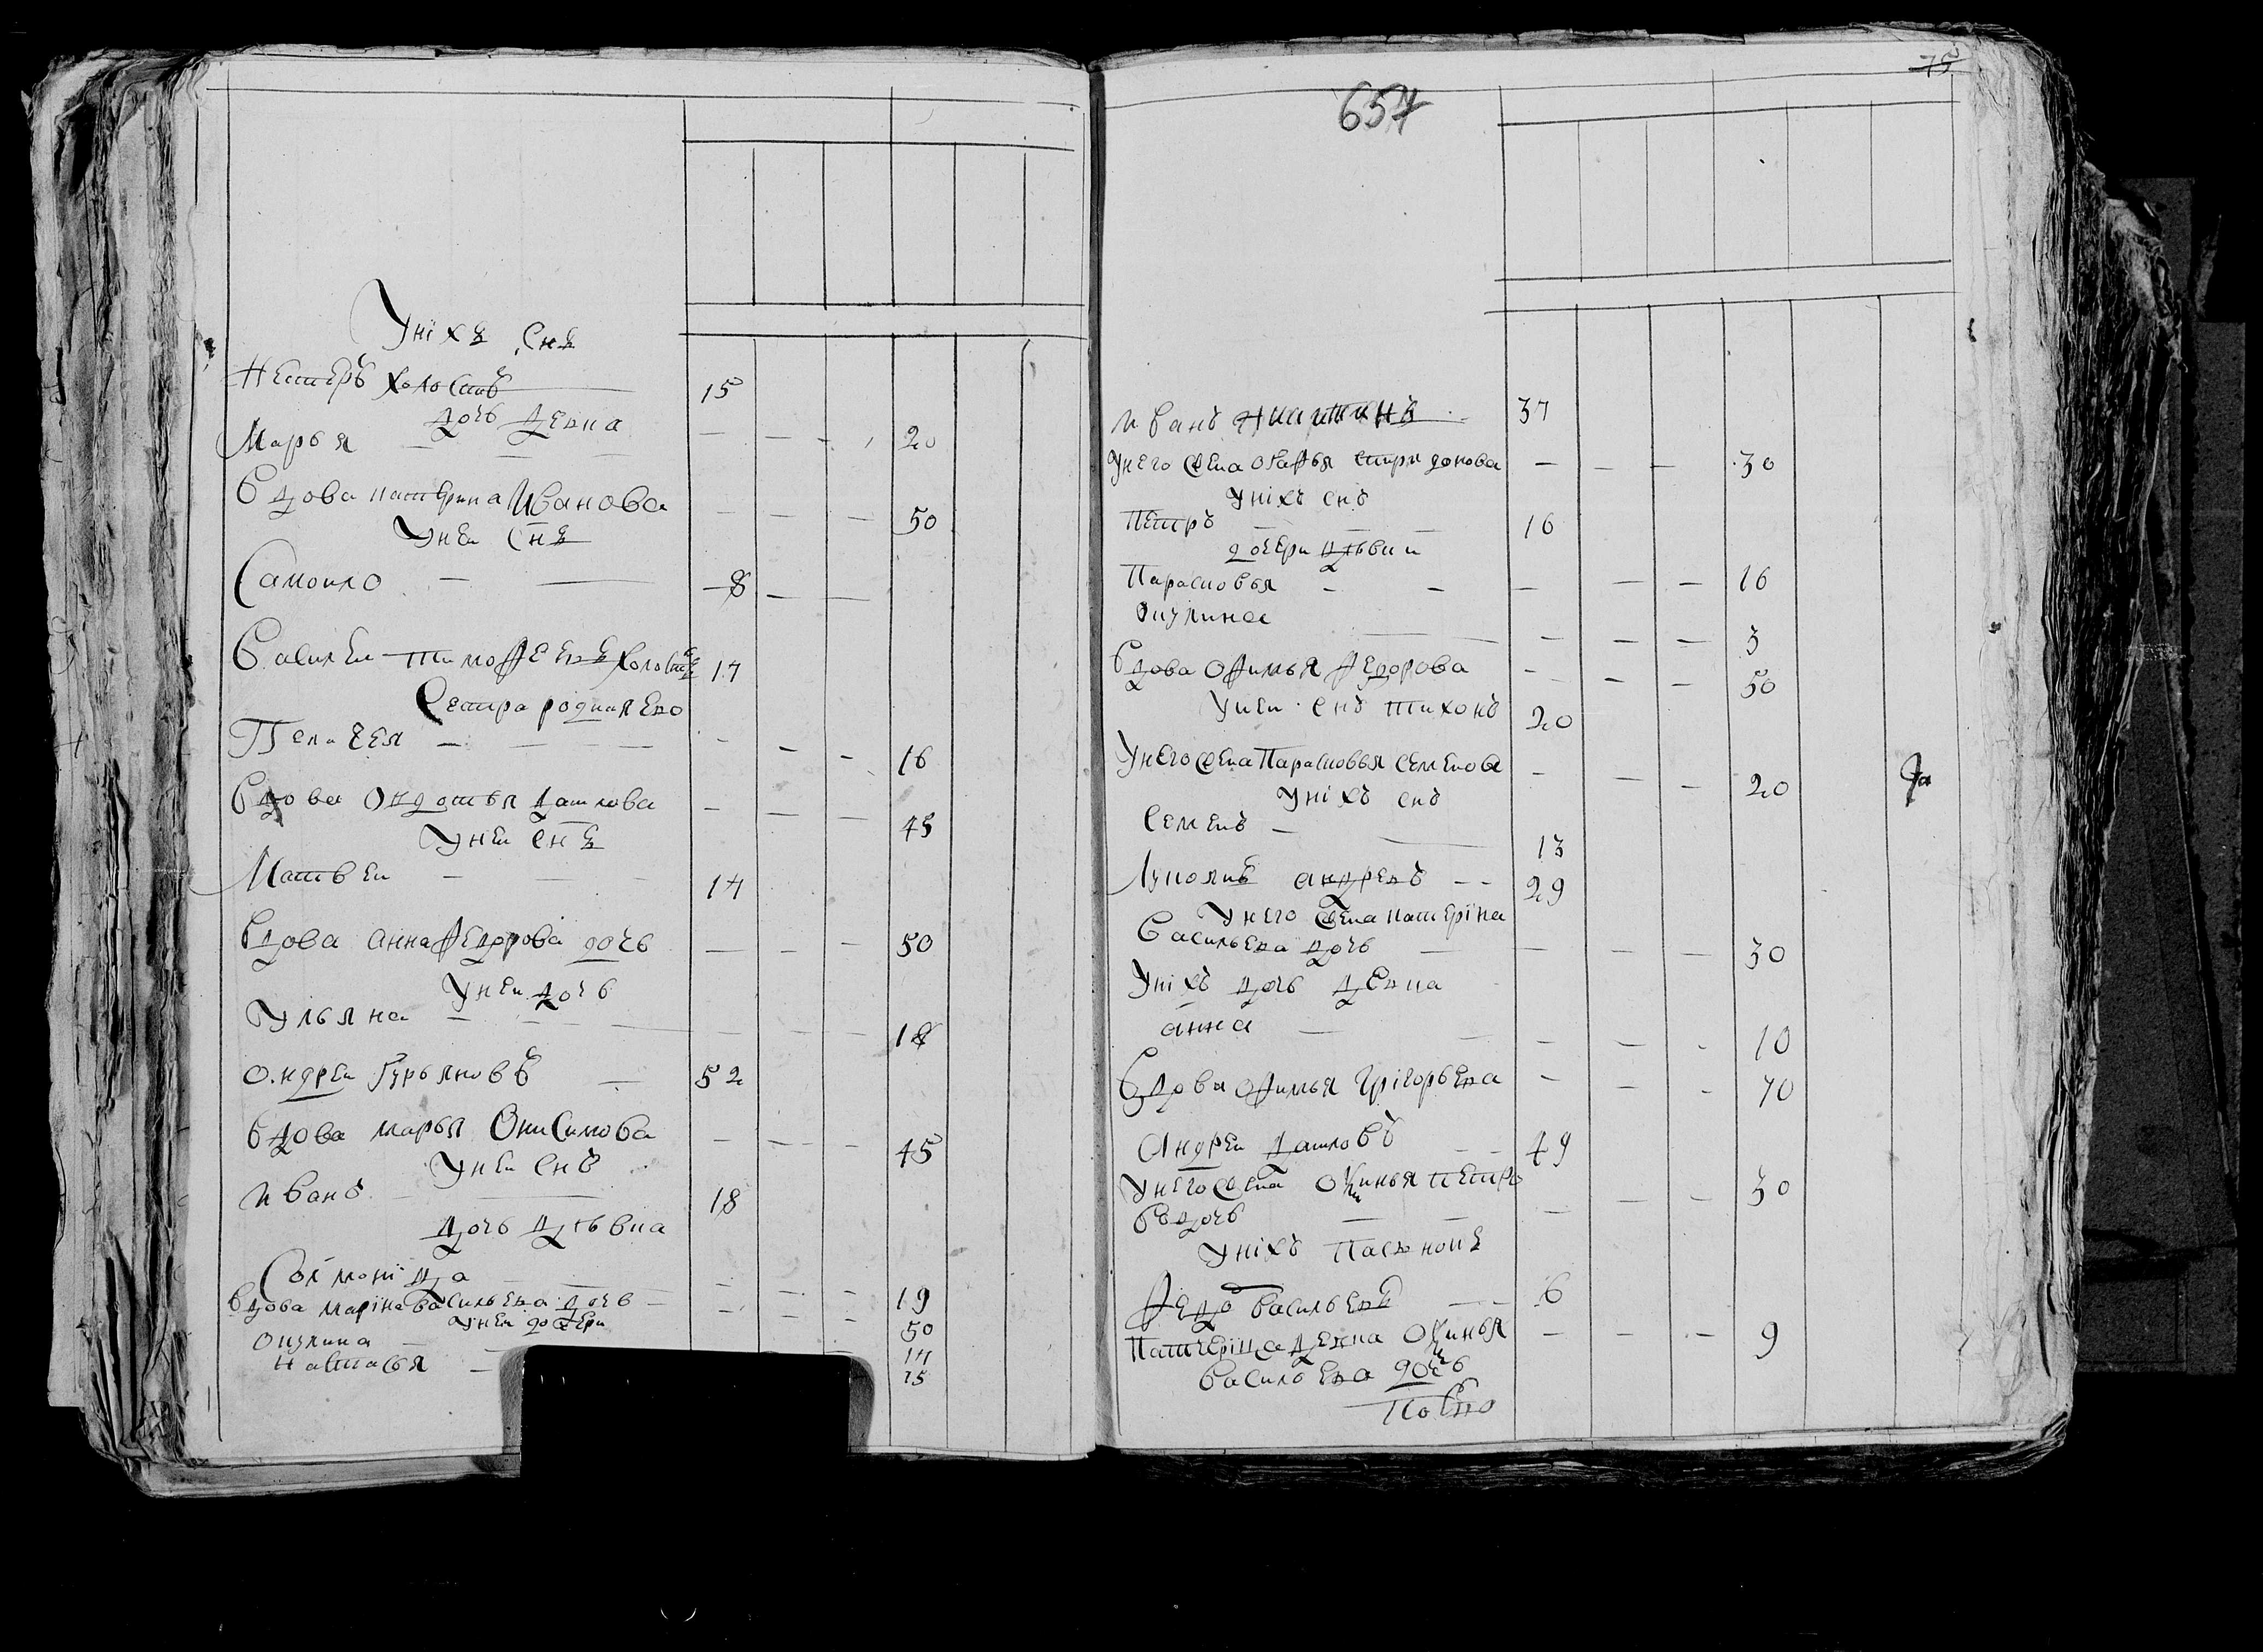 Унiхъ Снъ
Нестеръ холостъ 15
дочь девка
Марья — — — — 20
Вдова катерина Иванова — — — 50
Унеи Снъ
Самоило — — 8 — —
Василеи тимофеевъ холостъ 17
Сестра родная ево
Пелагея — — — — 16
Вдова Овдотья давлова — — — 45
Унеи Снъ
Матвеи — — 14
Вдова анна Федорова дочь — — — 50
Унеи дочь
Ульяна — — — — 18
Ондреи Гурьяновъ — 52
Вдова марья Онисимова — — — 45
Унеи Снъ
иванъ — 18
дочь дѣвка
Соломонiда — — — 19
Вдова марiна васильева дочь — — — 50
Унеи дочери
Окулина — 14
Настасья — 15
75
657
иванъ никитинъ 37
Унего жена огафья спиридонова — — — 30
Унiхъ снъ
Петръ — — — 16
дочери дѣвки
Парасковья — — — — — 16
Окулина — — — — 3
Вдова офимья Федорова — — — 50
Унеи снъ тихонъ 20
Унего жена Парасковья семенова — — — 20
Унiхъ снъ
Семенъ — — 13
андревъ — — 29
Унего жена катерiна
Васильева дочь — — — — 30
Унiхъ дочь девка
анна — — — — 10
Вдова офимья Григорьева — — — 70
Андреи — — 49
Унего жена Петро — — 30
ва дочь — — —
Унiхъ Пасынокъ
Федо Васильевъ — — 6
Патчерiца девка — — — 9
Васильева дочь